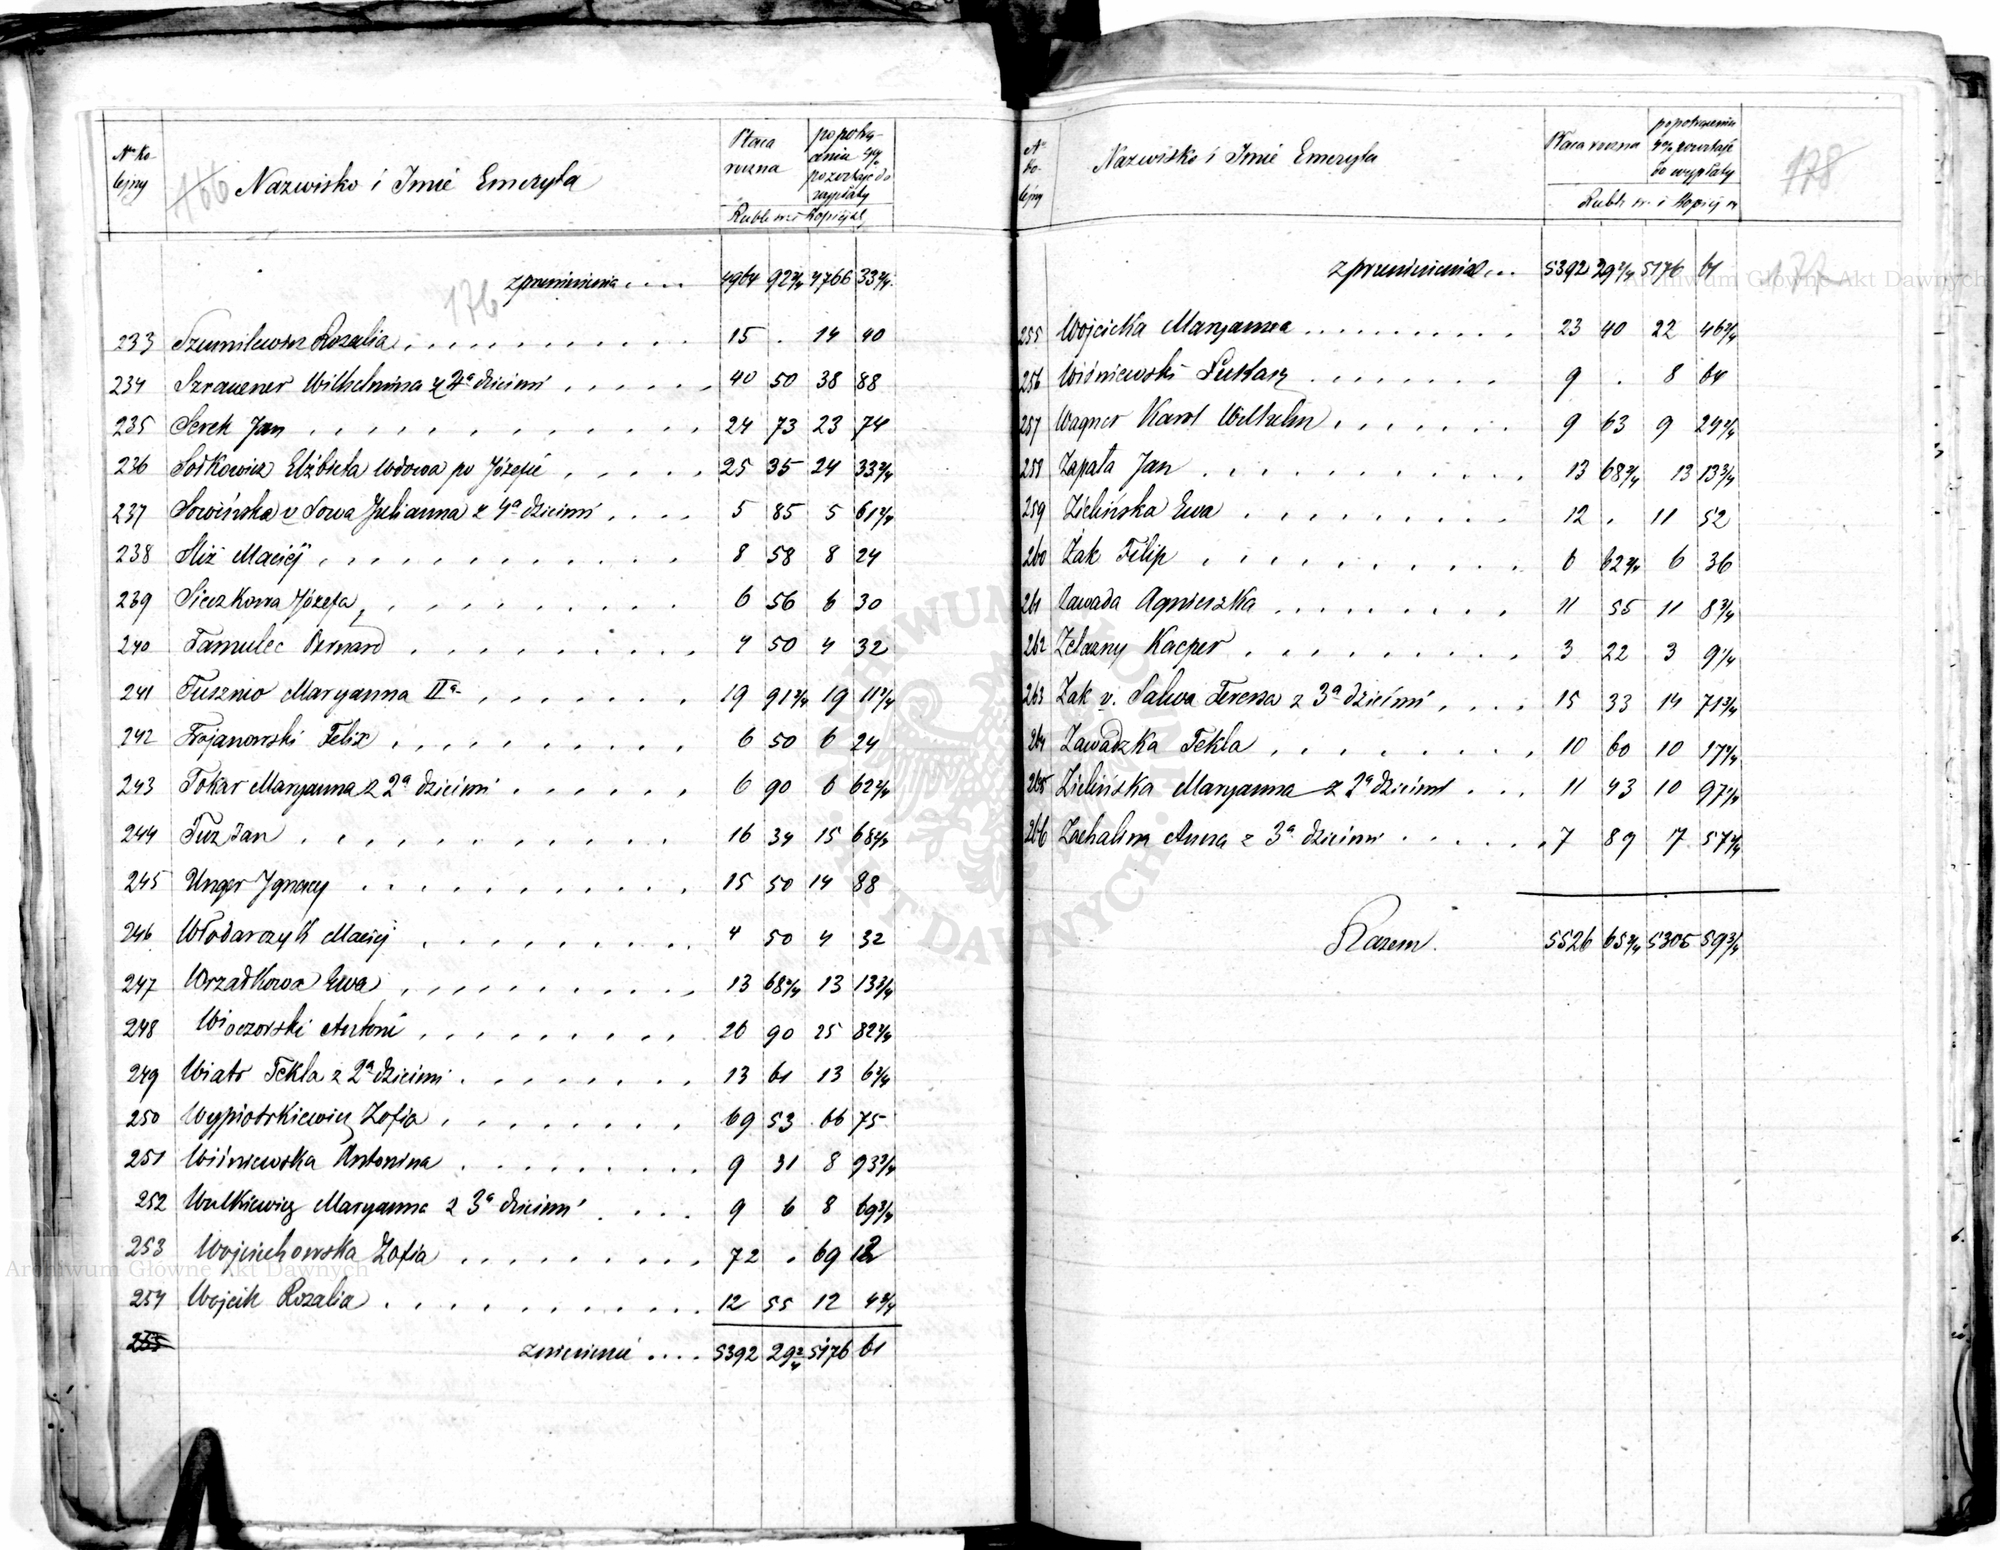 Nr Ko-
lejny
Nazwisko i Imie Emeryta
Płaca
roczna
po potrą-
ceniu 4%
pozostaje do
wypłaty
Rubli sr. i Kopiejek
166
176
z przeniesienia . . . . 4964 92 2/4 4766 33 2/4
233 Szumilewicz Rozalia 15 . 14 40
234 Szrauener Wilhelmina z 2ª dziećmi 40 50 38 88
235 Serek Jan 24 73 23 74
236 Sołkowicz Elżbieta wdowa po Józefie 25 35 24 33 2/4
237 Sowińska v Sowa Julianna z 4ª dziećmi 5 85 5 61 2/4
238 Śliż Maciej 8 58 8 24
239 Sieczkowa Józefa 6 56 6 30
240 Tamulec Bernard 4 50 4 32
241 Tusznio Maryanna IIª 19 91 2/4 19 11 3/4
242 Trojanowski Felix 6 50 6 24
243 Tokar Maryanna z 2ª dziećmi 6 90 6 62 2/4
244 Tuz Jan 16 34 15 68 2/4
245 Unger Ignacy 15 50 14 88
246 Włodarczyk Maciej 4 50 4 32
247 Wrzadkowa Ewa 13 68 2/4 13 13 3/4
248 Wieczorski Antoni 26 90 25 82 2/4
249 Wiatr Tekla z 2ª dziećmi 13 61 13 6 2/4
250 Wypiotrkiewicz Zofia 69 53 66 75
251 Wiśniewska Antonina 9 31 8 93 3/4
252 Walkiewicz Maryanna z 3ª dziećmi 9 6 8 69 3/4
253 Wojciechowska Zofia 72 . 69 12
254 Wójcik Rozalia 12 55 12 4 3/4
255
zniesienie . . . . 5392 29 2/4 5176 61
Nr
ko-
lejny
Nazwisko i Imie Emeryta
Płaca roczna
po potrąceniu
4% pozostaje
do wypłaty
Rubli sr. i Kopiejek
178
177
z przeniesienia . . . 5392 29 2/4 5176 61
255 Wójcicka Maryanna 23 40 22 46 2/4
256 Wiśniewski Łukasz 9 . 8 64
257 Wagner Karol Wilhelm 9 63 9 24 2/4
258 Zapała Jan 13 68 2/4 13 13 3/4
259 Zielińska Ewa 12 . 11 52
260 Żak Filip 6 62 2/4 6 36
261 Zawada Agnieszka 11 55 11 8 3/4
262 Żelazny Kacper 3 22 3 9 1/4
263 Żak v. Salwa Teressa z 3ª dziećmi 15 33 14 71 3/4
264 Zawadzka Tekla 10 60 10 17 2/4
265 Zielińska Maryanna z 2ª dziećmi 11 43 10 97 1/4
266 Zachalina Anna z 3ª dziećmi 7 89 7 57 2/4
Razem 5526 65 2/4 5305 59 3/4
Archiwum Główne Akt Dawnych
Archiwum Główne Akt Dawnych